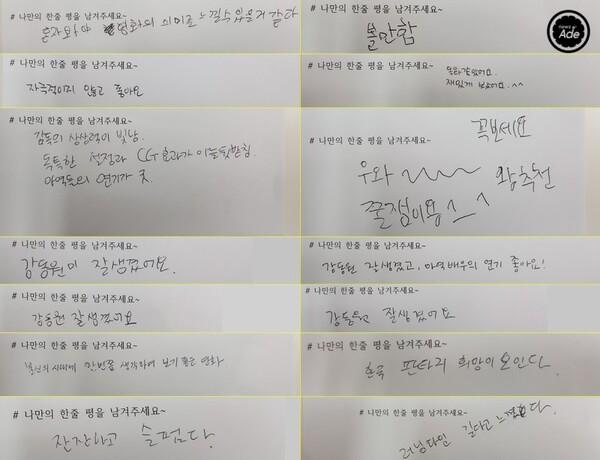 # 나만의 한줄 평을 남겨주세요~
혼자 보아야 영화의 의미를 느낄수있을거 같다
# 나만의 한줄 평을 남겨주세요~
자극적이지 않고 좋아요
# 나만의 한줄 평을 남겨주세요~
감독의 상상력이 빛남.
독특한 설정과 CG효과가 이를 뒷받침.
아역들의 연기가 굿.
# 나만의 한줄 평을 남겨주세요~
강동원이 잘생겼어요.
# 나만의 한줄 평을 남겨주세요~
강동원 잘생겼어요
# 나만의 한줄 평을 남겨주세요~
불신의 시대에 한번쯤 생각하며 보기 좋은 영화
# 나만의 한줄 평을 남겨주세요~
잔잔하고 슬펐다.
# 나만의 한줄 평을 남겨주세요~
볼만함
news's Ade
# 나만의 한줄 평을 남겨주세요~
재밌게 보았어요.^^
# 나만의 한줄 평을 남겨주세요~
꼭보세요
우와 왕추천
꿀잼이용^_^
# 나만의 한줄 평을 남겨주세요~
강동원 잘생겼고, 아역배우의 연기 좋아요!
# 나만의 한줄 평을 남겨주세요~
강동원 잘생겼어요
# 나만의 한줄 평을 남겨주세요~
한국 판타지 희망이 보인다.
# 나만의 한줄 평을 남겨주세요~
러닝타임 길다고 느껴졌다.